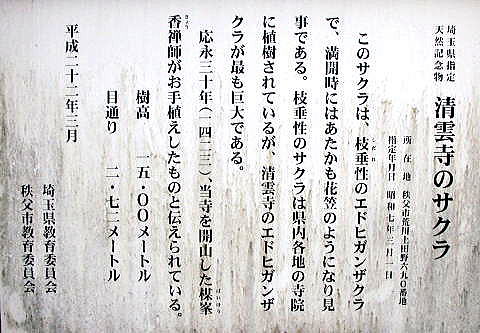 埼玉県指定
天然記念物
清雲寺のサクラ
所在地 秩父市荒川上田野六九〇番地
指定年月日 昭和七年三月一日
このサクラは、枝垂性のエドヒガンザクラ
しだれ
で、満開時にはあたかも花笠のようになり見
事である。枝垂性のサクラは県内各地の寺院
に植樹されているが、清雲寺のエドヒガンザ
クラが最も巨大である。
応永三十年(一四二三)、当寺を開山した楳峯
ばいほう
香禅師がお手植えしたものと伝えられている。
きょう
樹高 一五・〇〇メートル
目通り 二・七二メートル
平成二十二年三月
埼玉県教育委員会
秩父市教育委員会